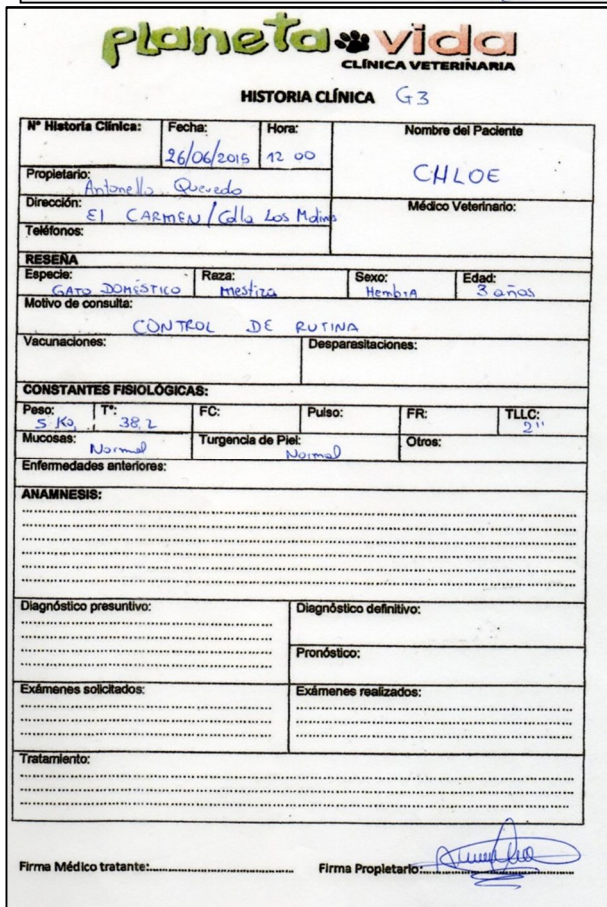 planeta vida
CLÍNICA VETERINARIA
HISTORIA CLÍNICA G3
Nº Historia Clínica: Fecha: Hora: Nombre del Paciente
26/06/2015 12 00
CHLOE
Propietario:
Antonella Quevedo
Dirección: Médico Veterinario:
El CARMEN / Calle Los Molinos
Teléfonos:
RESEÑA
Especie: Raza: Sexo: Edad:
GATO DOMÉSTICO Mestiza HembrA 3 años
Motivo de consulta:
CONTROL DE RUTINA
Vacunaciones: Desparasitaciones:
CONSTANTES FISIOLÓGICAS:
Peso: Tº: FC: Pulso: FR: TLLC:
5 Kg 38,2 2"
Mucosas: Turgencia de Piel: Otros:
Normal Normal
Enfermedades anteriores:
ANAMNESIS:
Diagnóstico presuntivo: Diagnóstico definitivo:
Pronóstico:
Exámenes solicitados: Exámenes realizados:
Tratamiento:
Firma Médico tratante: Firma Propietario: